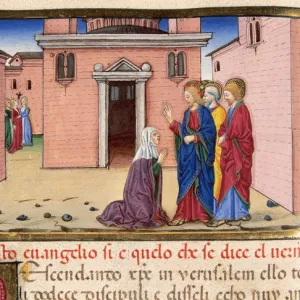 sto euangelio si e quelo che se dice el uerner
Escendando xp̄e in yerusalem ello to
li dodece discipuli e disseli echo quy an